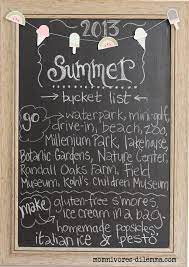 2013
Summer
bucket list
go
waterpark, mini golf,
drive-in, beach, zoo,
Millenium Park, lakehouse,
Botanic Gardens, Nature Center,
Randall Oaks Farm, Field
Museum, Kohl's Children Museum
make
gluten-free s'mores,
ice cream in a bag,
homemade popsicles,
italian ice & pesto
mommivores-dilemma.com